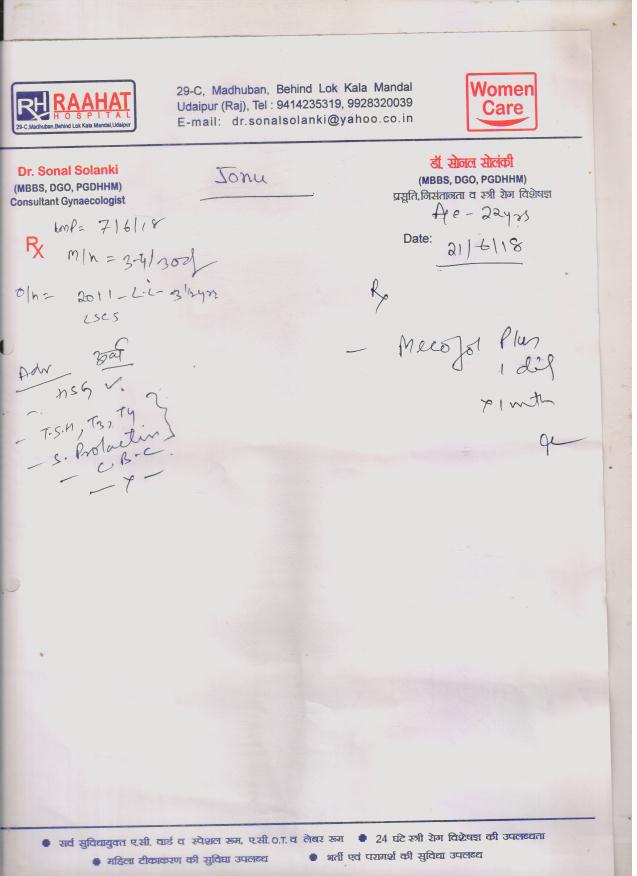 RH RAAHAT
HOSPITAL
29-C, Madhuban, Behind Lok Kala Mandal, Udaipur
29-C, Madhuban, Behind Lok Kala Mandal
Udaipur (Raj), Tel : 9414235319, 9928320039
E-mail: dr.sonalsolanki@yahoo.co.in
Women
Care
Dr. Sonal Solanki
(MBBS, DGO, PGDHHM)
Consultant Gynaecologist
Jonu
डॉ. सोनल सोलंकी
(MBBS, DGO, PGDHHM)
प्रसूति, निसंतानता व स्त्री रोग विशेषज्ञ
Age - 22yrs
Date: 21/6/18
LMP = 7/6/18
Rx
M/H = 3-4/30d
O/H = 2011 -
LSCS
Rx
Adv
- HSG ✓.
- T.S.H, T3, T4
- S. Prolactin
- C.B.C.
- x -
- Plus
x 1 mth
सर्व सुविधायुक्त ए.सी. वार्ड व स्पेशल रूम, ए.सी.O.T. व लेबर रूम
24 घंटे स्त्री रोग विशेषज्ञ की उपलब्धता
महिला टीकाकरण की सुविधा उपलब्ध
भर्ती एवं परामर्श की सुविधा उपलब्ध